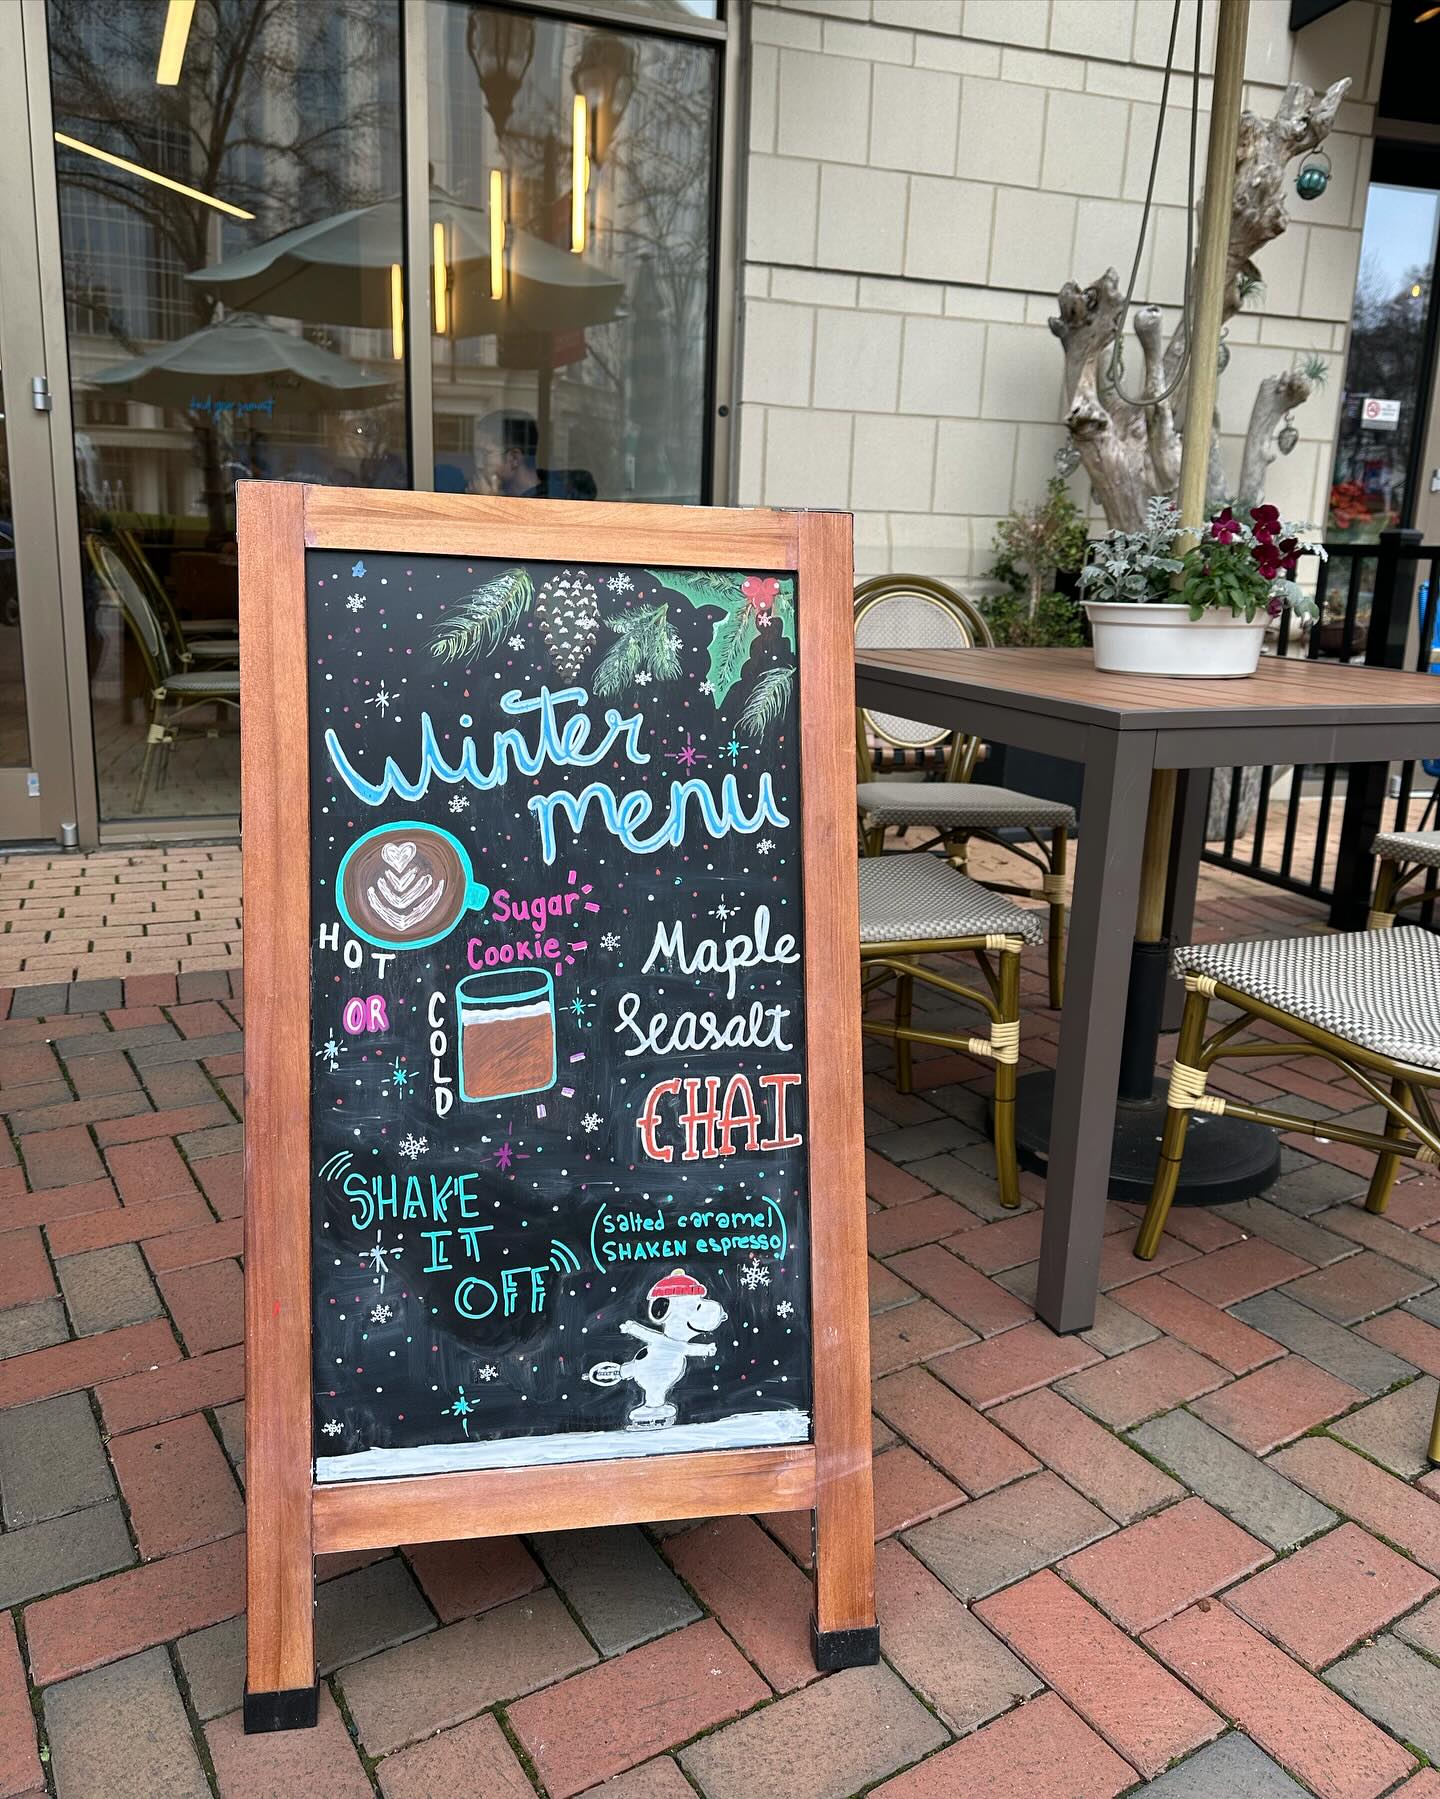 Winter
menu
Sugar
Cookie
HOT
OR
COLD
Maple
Seasalt
CHAI
SHAKE
IT
OFF
(salted caramel
SHAKEN espresso)